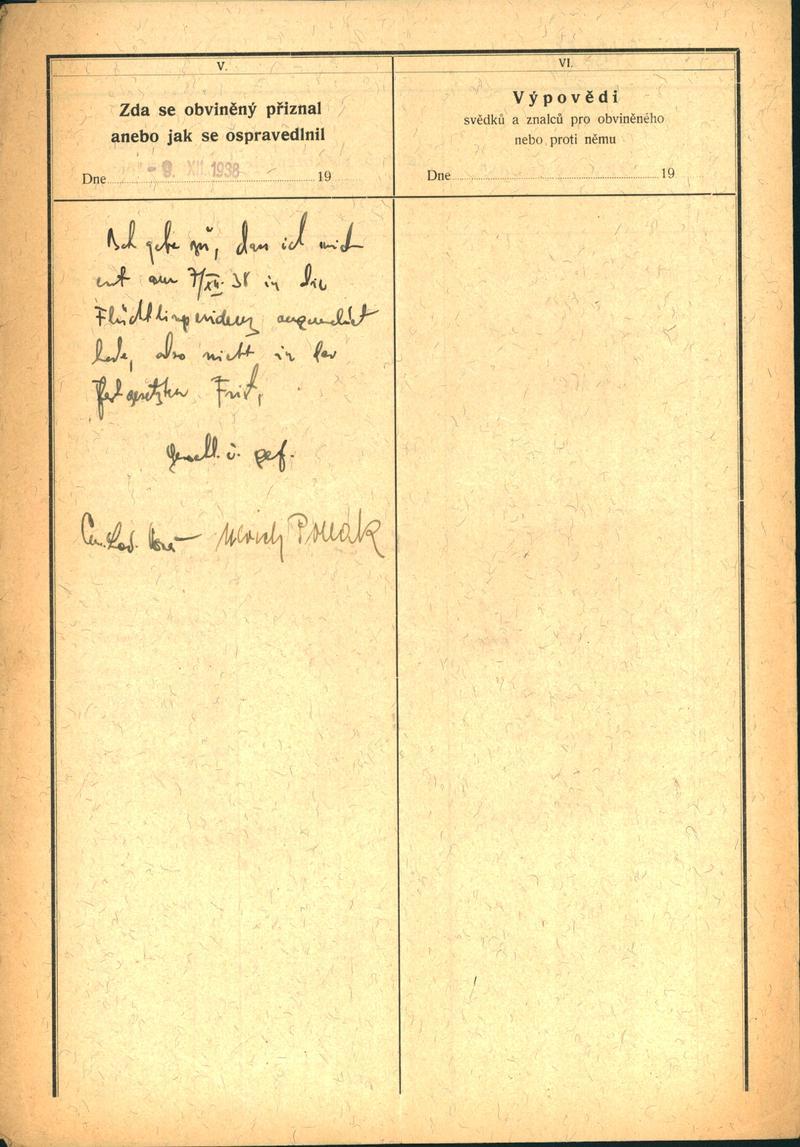 V.
Zda se obviněný přiznal
anebo jak se ospravedlnil
Dne - 9. XII 1938 19
Ich gebe zu, dass ich mich
erst am 7/XII. 38 in die
Flüchtlingsevidenz angemeldet
habe, also nicht in der
festgesetzten Frist,
gef.
Pollak
VI.
Výpovědi
svědků a znalců pro obviněného
nebo proti němu
Dne 19